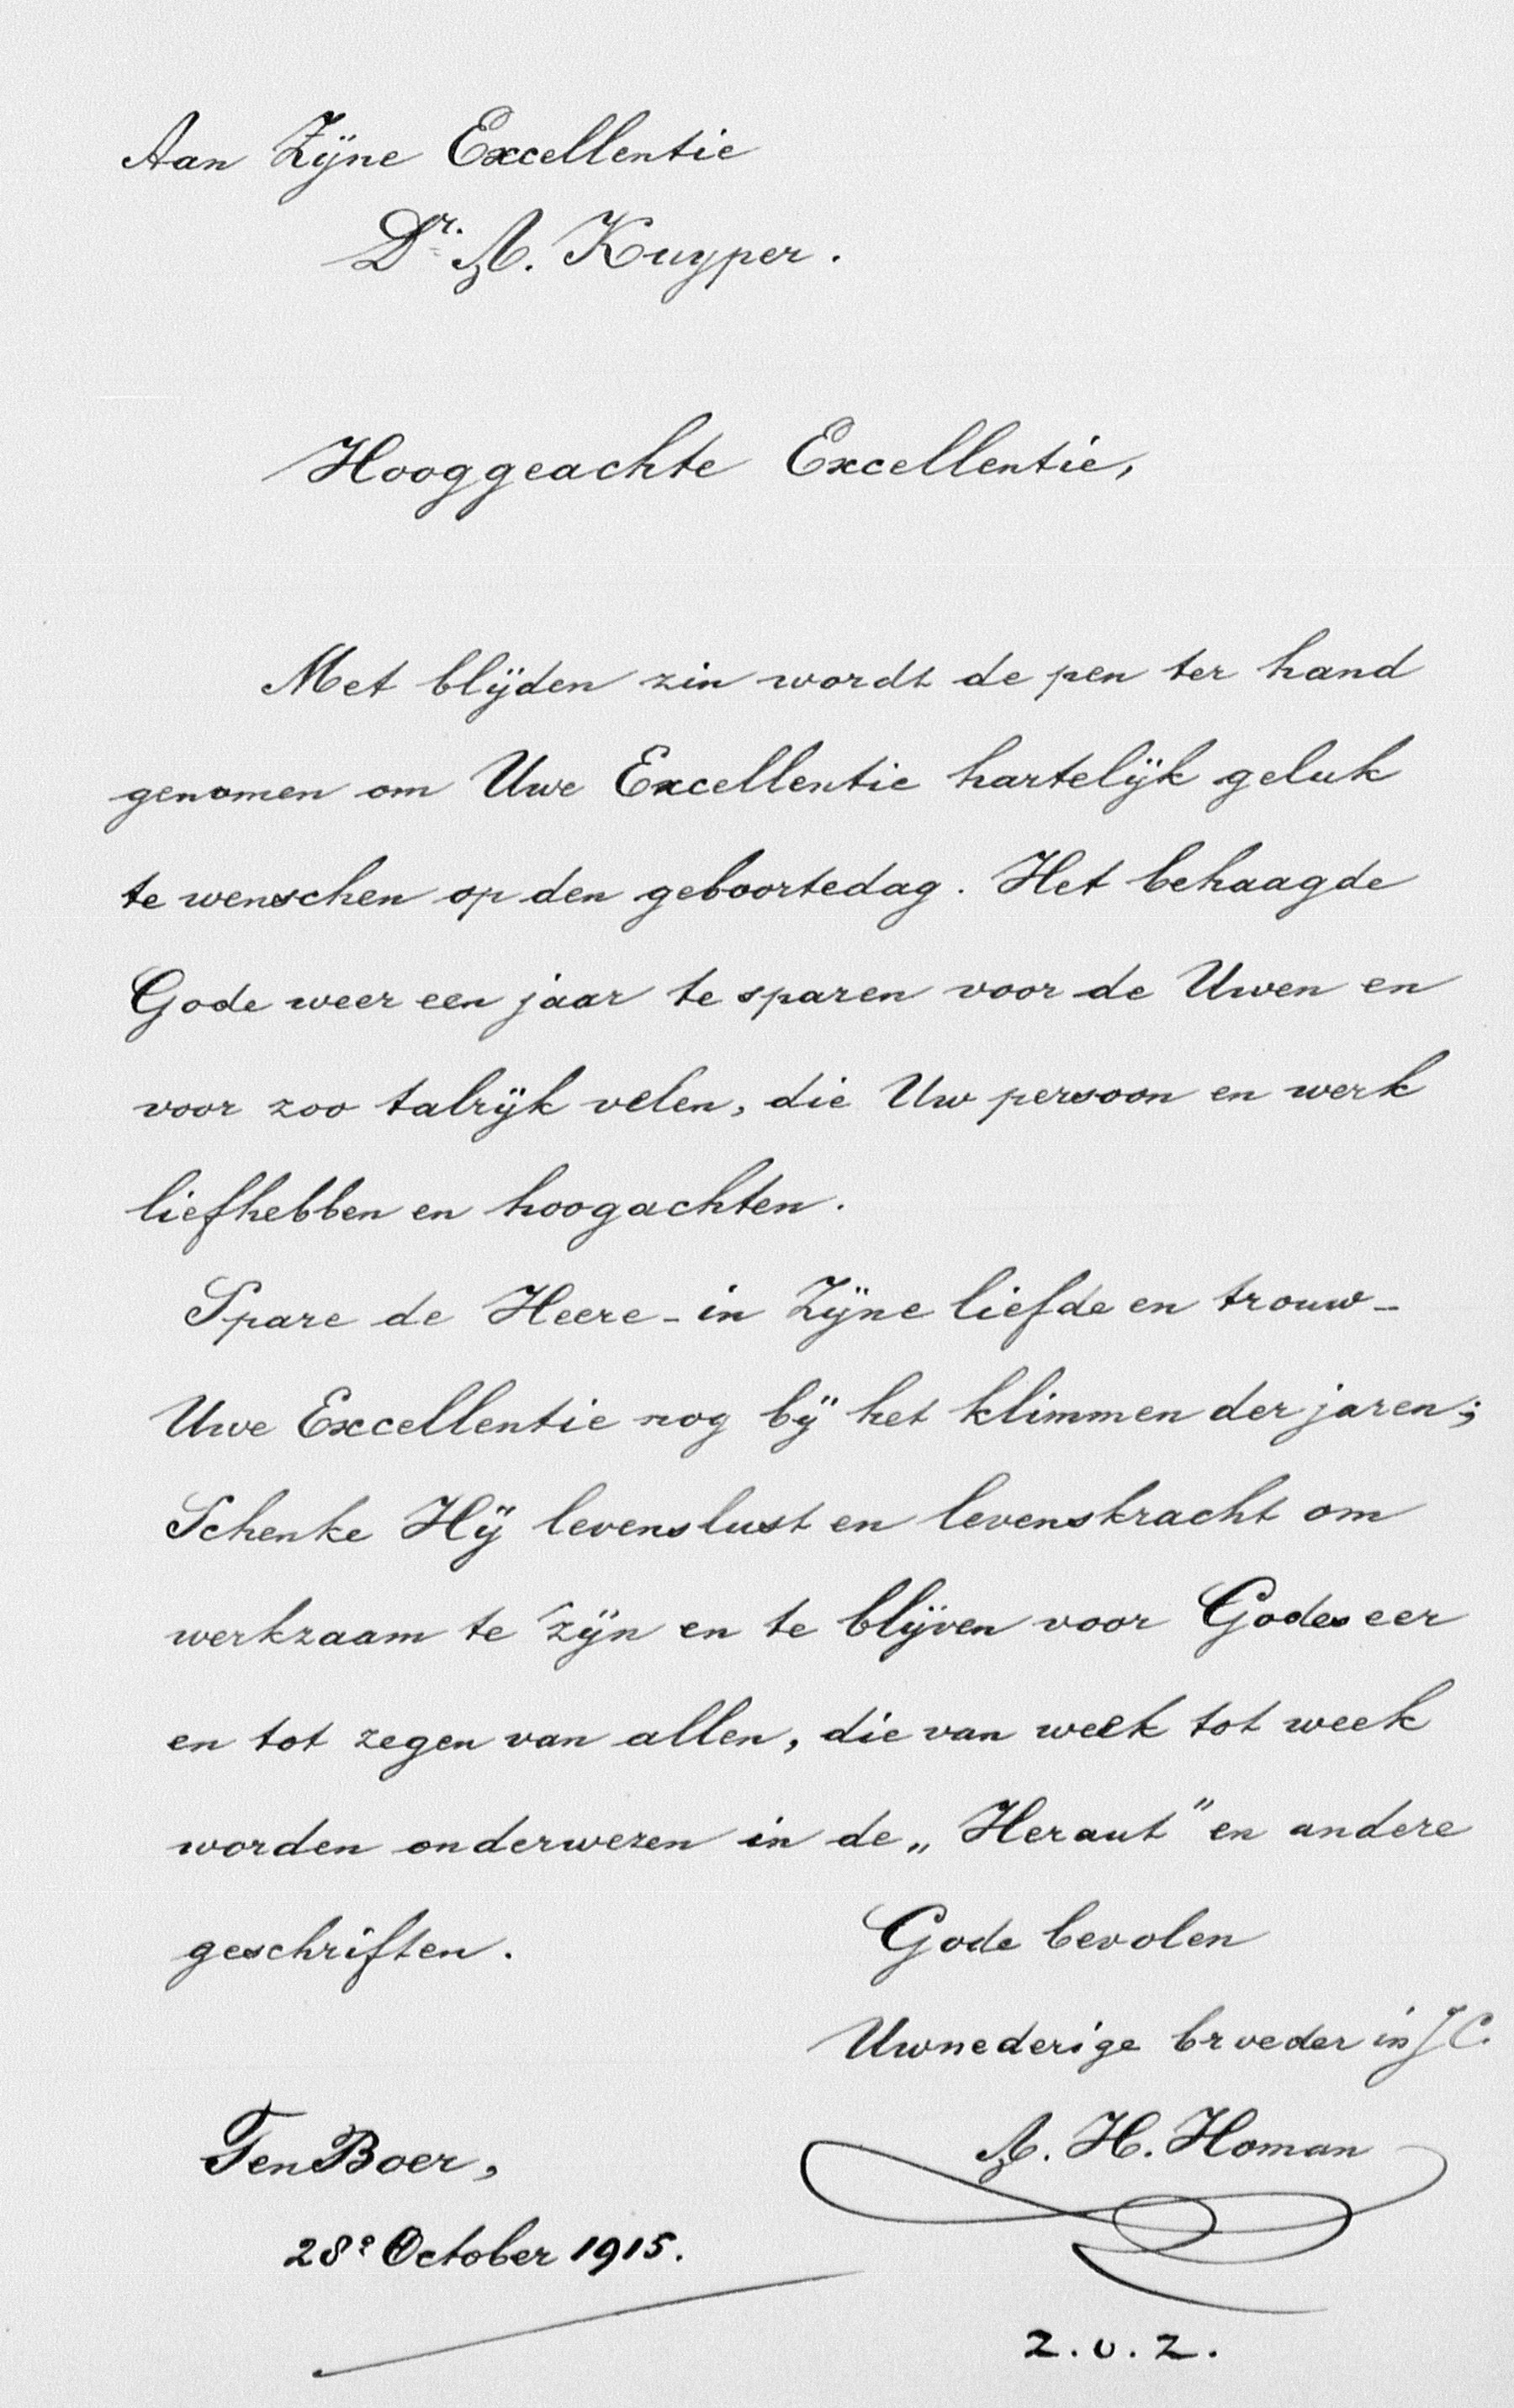 Aan Zijne Excellentie
Dr. A. Kuyper.
Hooggeachte Excellentie,
Met blijden zin wordt de pen ter hand
genomen om Uwe Excellentie hartelijk geluk
te wenschen op den geboortedag. Het behaagde
Gode weer een jaar te sparen voor de Uwen en
voor zoo talrijk velen, die Uw persoon en werk
liefhebben en hoogachten.
Spare de Heere - in Zijne liefde en trouw -
Uwe Excellentie nog bij het klimmen der jaren;
Schenke Hij levenslust en levenskracht om
werkzaam te zijn en te blijven voor Godes eer
en tot zegen van allen, die van week tot week
worden onderwezen in de „Heraut" en andere
geschriften.
Gode bevolen
Uw nederige broeder in J.C.
A. H. Homan
Ten Boer,
28e October 1915.
z.o.z.